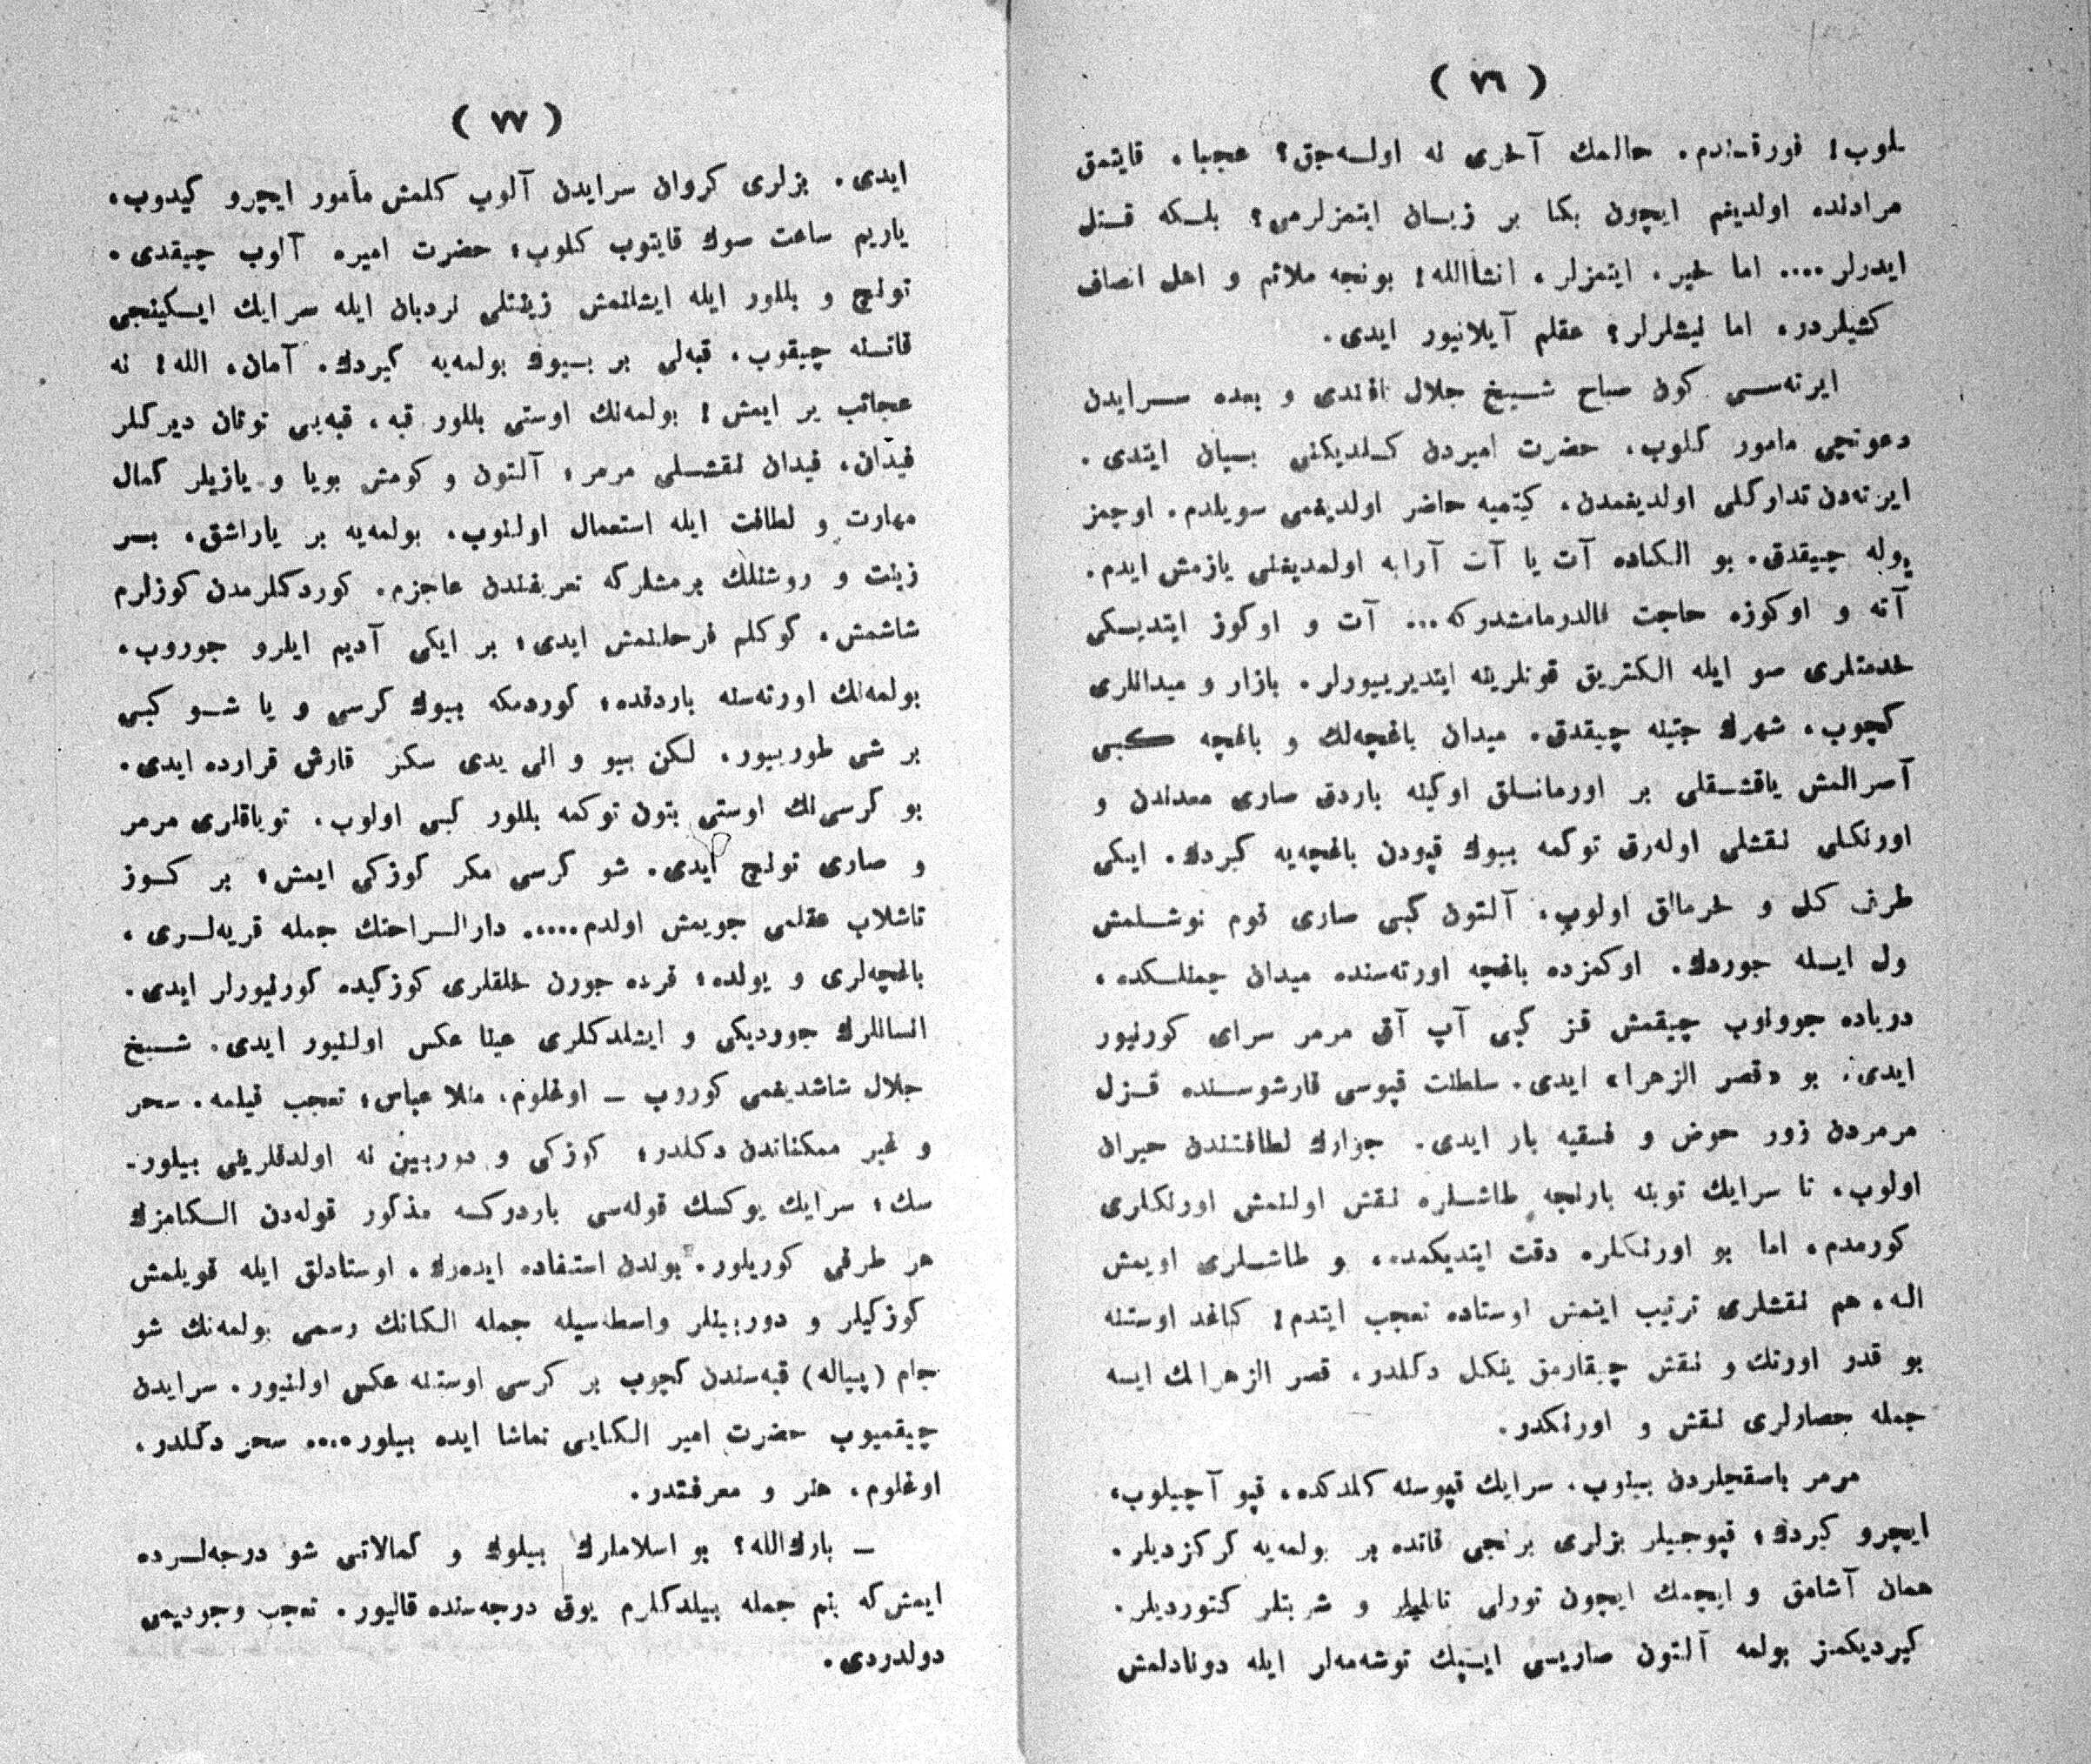 ( ٧٦ )
لوب! قورقدم. حالمك آخرى نه اوله‌جق؟ عجبا، قايتمق
مرادنده اولديغم ايچون بكا بر زيان ايتمزلرمى؟ بلكه قتل
ايدرلر.... اما خير، ايتمزلر، انشاالله! بونجه ملائم و اهل انصاف
كشيلردر، اما نيشلرلر؟ عقلم آيلانيور ايدى.
ايرته‌سى كون صباح شيخ جلال افندى و بعده سرايدن
دعوتچى مامور كلوب، حضرت اميردن كلديكنى بيان ايتدى.
ايرته‌دن تداركلى اولديغمدن، كيتميه حاضر اولديغمى سويلدم. اوچمز
يوله چيقدق. بو الكاده آت يا آت آرابه اولمديغنى يازمش ايدم.
آته و اوكوزه حاجت قالدرمامشدركه... آت و اوكوز ايتديكى
خدمتلرى صو ايله الكتريق قوتلرينه ايتديرييورلر. بازار و ميدانلرى
كچوب، شهرك چتينه چيقدق. ميدان باغچه‌لك و باغچه كبى
آصرالمش ياقشقلى بر اورمانلق اوكينه باردق صارى معدندن و
اورنكلى نقشلى اوله‌رق توكمه بيوك قپودن باغچه‌يه كيردك. ايكى
طرف كل و خرمالق اولوب، آلتون كبى صارى قوم توشلمش
ول ايله جوردك. اوكمزده باغچه اورته‌سنده ميدان چمنلكده،
درياده جوونوب چيقمش قز كبى آپ آق مرمر سراى كورنيور
ايدى؛ بو «قصر الزهرا» ايدى. سلطنت قپوسى قارشوسنده قزل
مرمردن زور حوض و فسقيه بار ايدى. جوارك لطافتندن حيران
اولوب، تا سرايك توبنه بارنجه طاشلره نقش اولنمش اورنكلرى
كورمدم، اما بو اورنكلره دقت ايتديكمده، و طاشلرى اويمش
اله، هم نقشلرى ترتيب ايتمش اوستاده تعجب ايتدم! كاغد اوستنه
بو قدر اورنك و نقش چيقارمق ينكل دكلدر، قصر الزهرانك ايسه
جمله حصارلرى نقش و اورنكدر.
مرمر باصقچلردن بينوب، سرايك قپوسنه كلدكده، قپو آچيلوب،
ايچرو كيردك؛ قپوجيلر بزلرى برنجى قاتده بر بولمه‌يه كركزديلر.
همان آشامق و ايچمك ايچون تورلى تاتليلر و شربتلر كتورديلر.
كيرديكمز بولمه آلتون صاريسى ايپك توشه‌مه‌لر ايله دونادلمش
( ٧٧ )
ايدى. بزلرى كروان سرايدن آلوب كلمش مأمور ايچرو كيدوب،
ياريم ساعت صوك قايتوب كلوب؛ حضرت اميره آلوب چيقدى.
تولچ و بللور ايله ايشلنمش زينتلى نردبان ايله سرايك ايكينجى
قاتنه چيقوب، قبه‌لى بر بيوك بولمه‌يه كيردك. آمان، الله! نه
عجائب ير ايمش! بولمه‌نك اوستى بللور قبه، قبه‌يى توتان ديركلر
فيدان، فيدان نقشلى مرمر؛ آلتون و كومش بويا و يازيلر كمال
مهارت و لطافت ايله استعمال اولنوب، بولمه‌يه بر ياراشق، بر
زينت و روشنلك يرمشلركه تعريفندن عاجزم. كوردكلرمدن كوزلرم
شاشمش، كوكلم فرحلنمش ايدى؛ بر ايكى آديم ايلرو جوروب،
بولمه‌نك اورته‌سنه باردقده؛ كوردمكه بيوك كرسى و يا شو كبى
بر شى طوربيور. لكن بيو و الى يدى سكز قارش قرارده ايدى.
بو كرسى‌نك اوستى بتون توكمه بللور كبى اولوب، توباقلرى مرمر
و صارى تولچ ايدى. شو كرسى مكر كوزكى ايمش؛ بر كوز
تاشلاب عقلمى جويمش اولدم..... دارالراحتك جمله قريه‌لرى،
باغچه‌لرى و يولده؛ قرده جورن خلقلرى كوزكيده كورنيورلر ايدى.
انسانلرك جوروديكى و ايشلدكلرى عينا عكس اولنيور ايدى. شيخ
جلال شاشديغمى كوروب ـ اوغلوم، منلا عباس؛ تعجب قيلمه. سحر
و غير ممكناتدن دكلدر؛ كوزكى و دوربين نه اولدقلرينى بيلور-
سك؛ سرايك يوكسك قوله‌سى باردركه مذكور قوله‌دن الكامزك
هر طرفى كوريلور. بولدن استفاده ايده‌رك، اوستادلق ايله قويلمش
كوزكيلر و دوربينلر واسطه‌سيله جمله الكانك رسمى بولمه‌نك شو
جام (پياله) قبه‌سندن كچوب بر كرسى اوستنه عكس اولنيور. سرايدن
چيقميوب حضرت امير الكايى تماشا ايده بيلور.... سحر دكلدر،
اوغلوم، هنر و معرفتدر.
ـ بارك‌الله؟ بو اسلاملرك بيلوك و كمالاتى شو درجه‌لرده
ايمش‌كه بنم جمله بيلدكلرم يوق درجه‌سنده قاليور. تعجب وجوديمى
دولدردى.